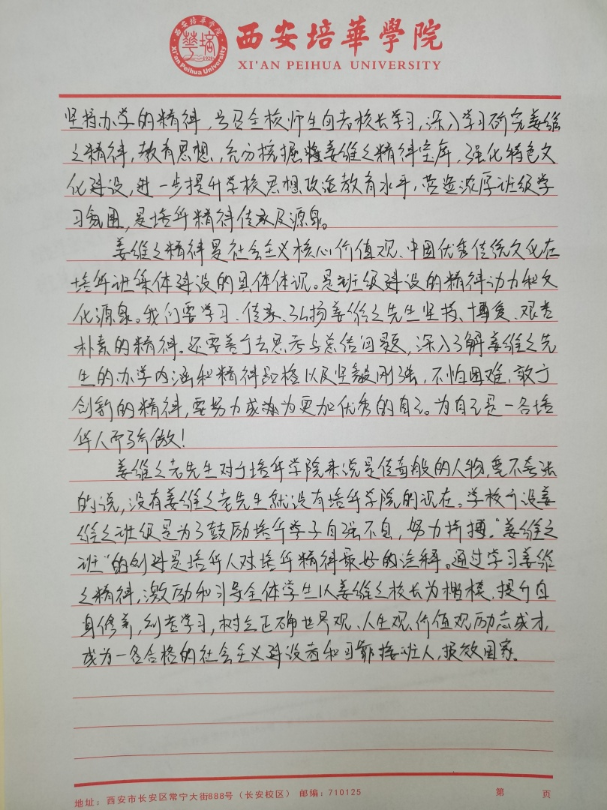 西安培華學院
XI'AN PEIHUA UNIVERSITY
坚持办学的精神，号召全校师生向老校长学习，深入学习研究姜维
之精神，教育思想，充分挖掘姜维之精神宝库，强化特色文
化建设，进一步提升学校思想政治教育水平，营造浓厚班级学
习氛围，是培华精神传承及源泉。
姜维之精神是社会主义核心价值观、中国优秀传统文化在
培华班集体建设的具体体现。是班级建设的精神动力和文
化源泉。我们要学习、传承、弘扬姜维之先生坚持、博爱、艰苦
朴素的精神。还要善于去思考与总结问题，深入了解姜维之先
生的办学内涵和精神品格以及坚毅刚强，不怕困难，敢于
创新的精神，要努力成为更加优秀的自己。为自己是一名培
华人而骄傲！
姜维之老先生对于培华学院来说是传奇般的人物，毫不夸张
的说，没有姜维之老先生就没有培华学院的现在。学校开设姜
维之班级是为了鼓励培华学子自强不息，努力拼搏。“姜维之
班”的创建是培华人对培华精神最好的诠释。通过学习姜维
之精神，激励和引导全体学生以姜维之校长为楷模、提升自
身修养，刻苦学习，树立正确世界观、人生观、价值观，励志成才，
成为一名合格的社会主义建设者和可靠接班人，报效国家。
地址：西安市长安区常宁大街888号（长安校区） 邮编：710125
第 页